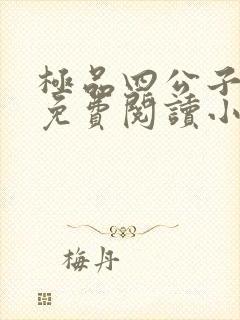 極品四公子
免費閱讀小
梅丹